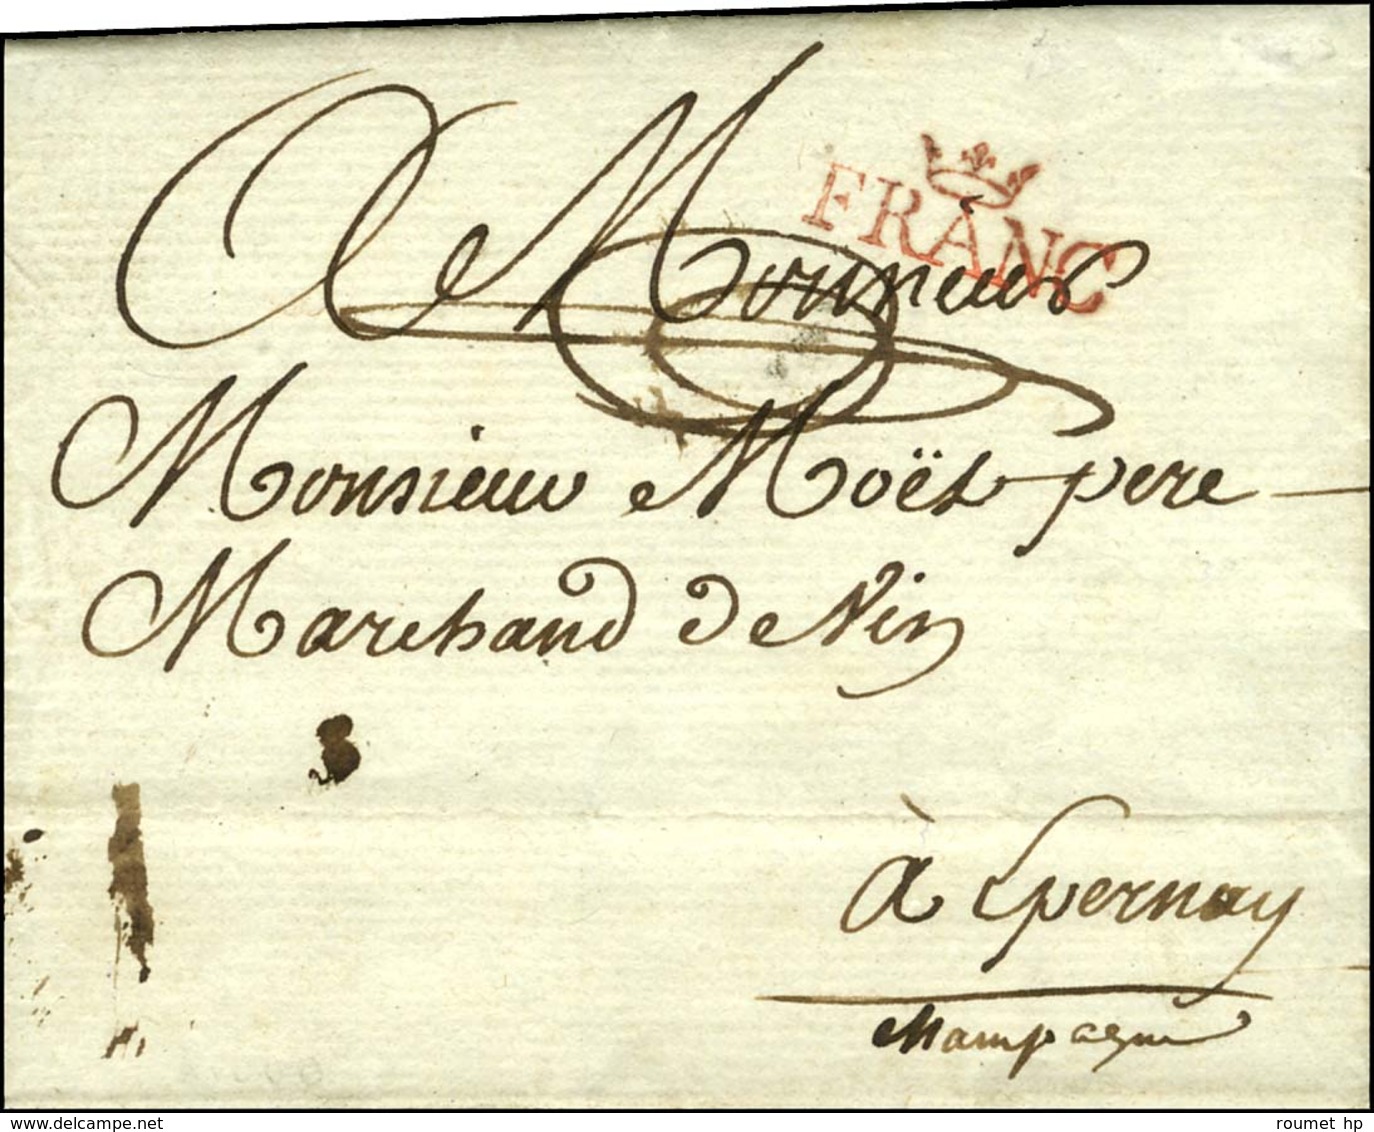 FRANC
A Monsieur
Monsieur Moët pere
Marchand de Vin
à Epernay
Champagne
roumet hp